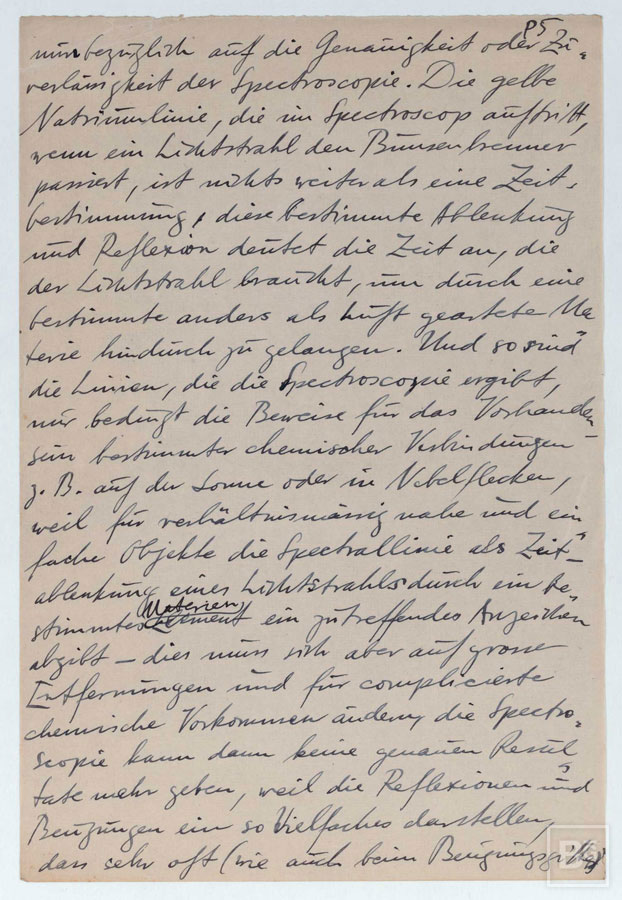 p5
nun bezüglich auf die Genauigkeit oder Zu-
verlässigkeit der Spectroscopie. Die gelbe
Natriumlinie, die im Spectroscop auftritt,
wenn ein Lichtstrahl den Bunsenbrenner
passiert, ist nichts weiter als eine Zeit-
bestimmung, diese bestimmte Ablenkung
und Reflexion deutet die Zeit an, die
der Lichtstrahl braucht, um durch eine
bestimmte anders als Luft geartete Ma-
terie hindurch zu gelangen. Und so sind
die Linien, die die Spectroscopie ergibt,
nur bedingt die Beweise für das Vorhanden-
sein bestimmter chemischer Verbindungen
z. B. auf der Sonne oder in Nebelflecken,
weil für verhältnismässig nahe und ein-
fache Objekte die Spectrallinie als Zeit-
ablenkung eines Lichtstrahls durch ein be-
Materien
stimmtes Element ein zutreffendes Anzeichen
abgibt — dies muss sich aber auf grosse
Entfernungen und für complicierte
chemische Vorkommen ändern, die Spectro-
scopie kann dann keine genauen Resul-
tate mehr geben, weil die Reflexionen und
Beugungen ein so Vielfaches darstellen,
dass sehr oft (wie auch beim Beugungsgitter)